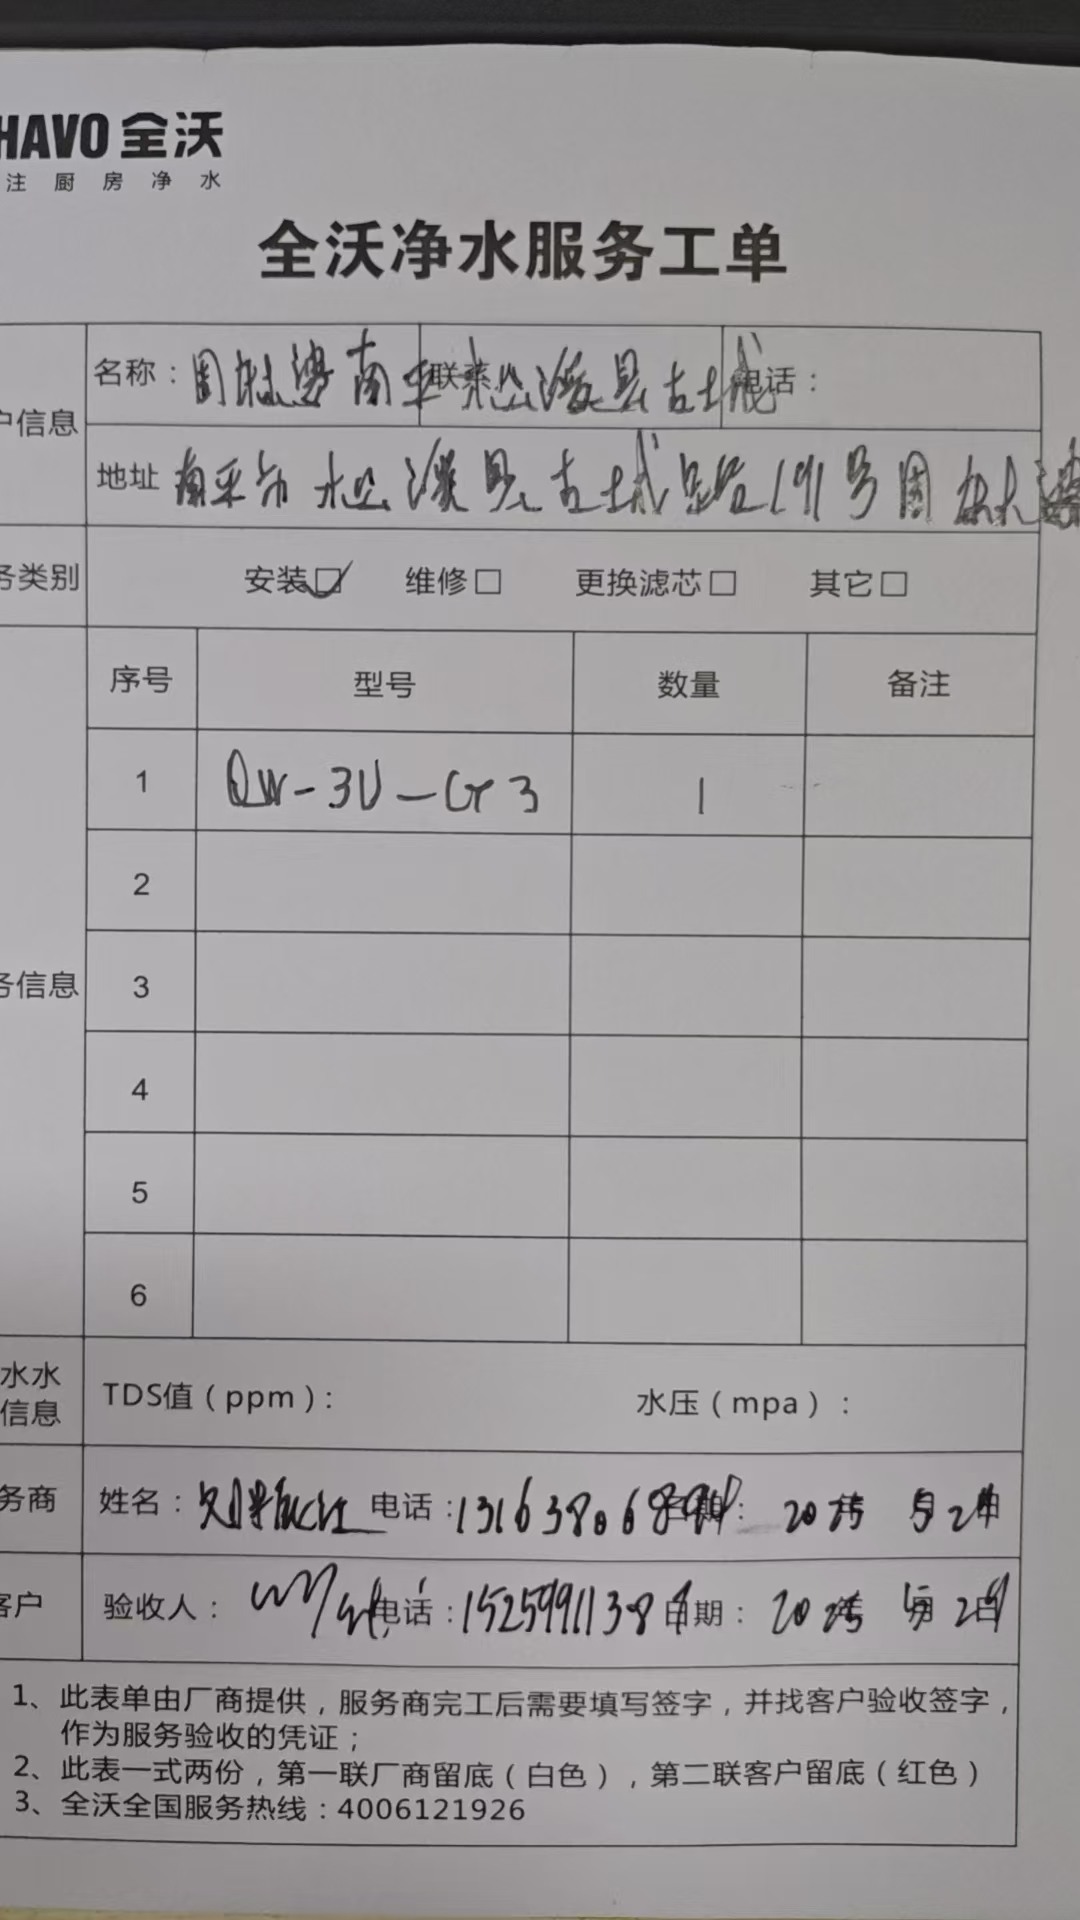 HAVO 全沃
注厨房净水
全沃净水服务工单
户信息
名称：周 南平 松溪县古城
联系
电话：
地址 南平市松溪县古城路191号周
务类别
安装☑ 维修□ 更换滤芯□ 其它□
序号 型号 数量 备注
1 QW-3U-G3 1
2
3
务信息
4
5
6
水水
信息
TDS值（ppm）： 水压（mpa）：
务商
姓名： 电话：131638068 日期：2025年5月2日
客户
验收人： 电话：1525991138 日期：2025年5月2日
1、此表单由厂商提供，服务商完工后需要填写签字，并找客户验收签字，
作为服务验收的凭证；
2、此表一式两份，第一联厂商留底（白色），第二联客户留底（红色）
3、全沃全国服务热线：4006121926